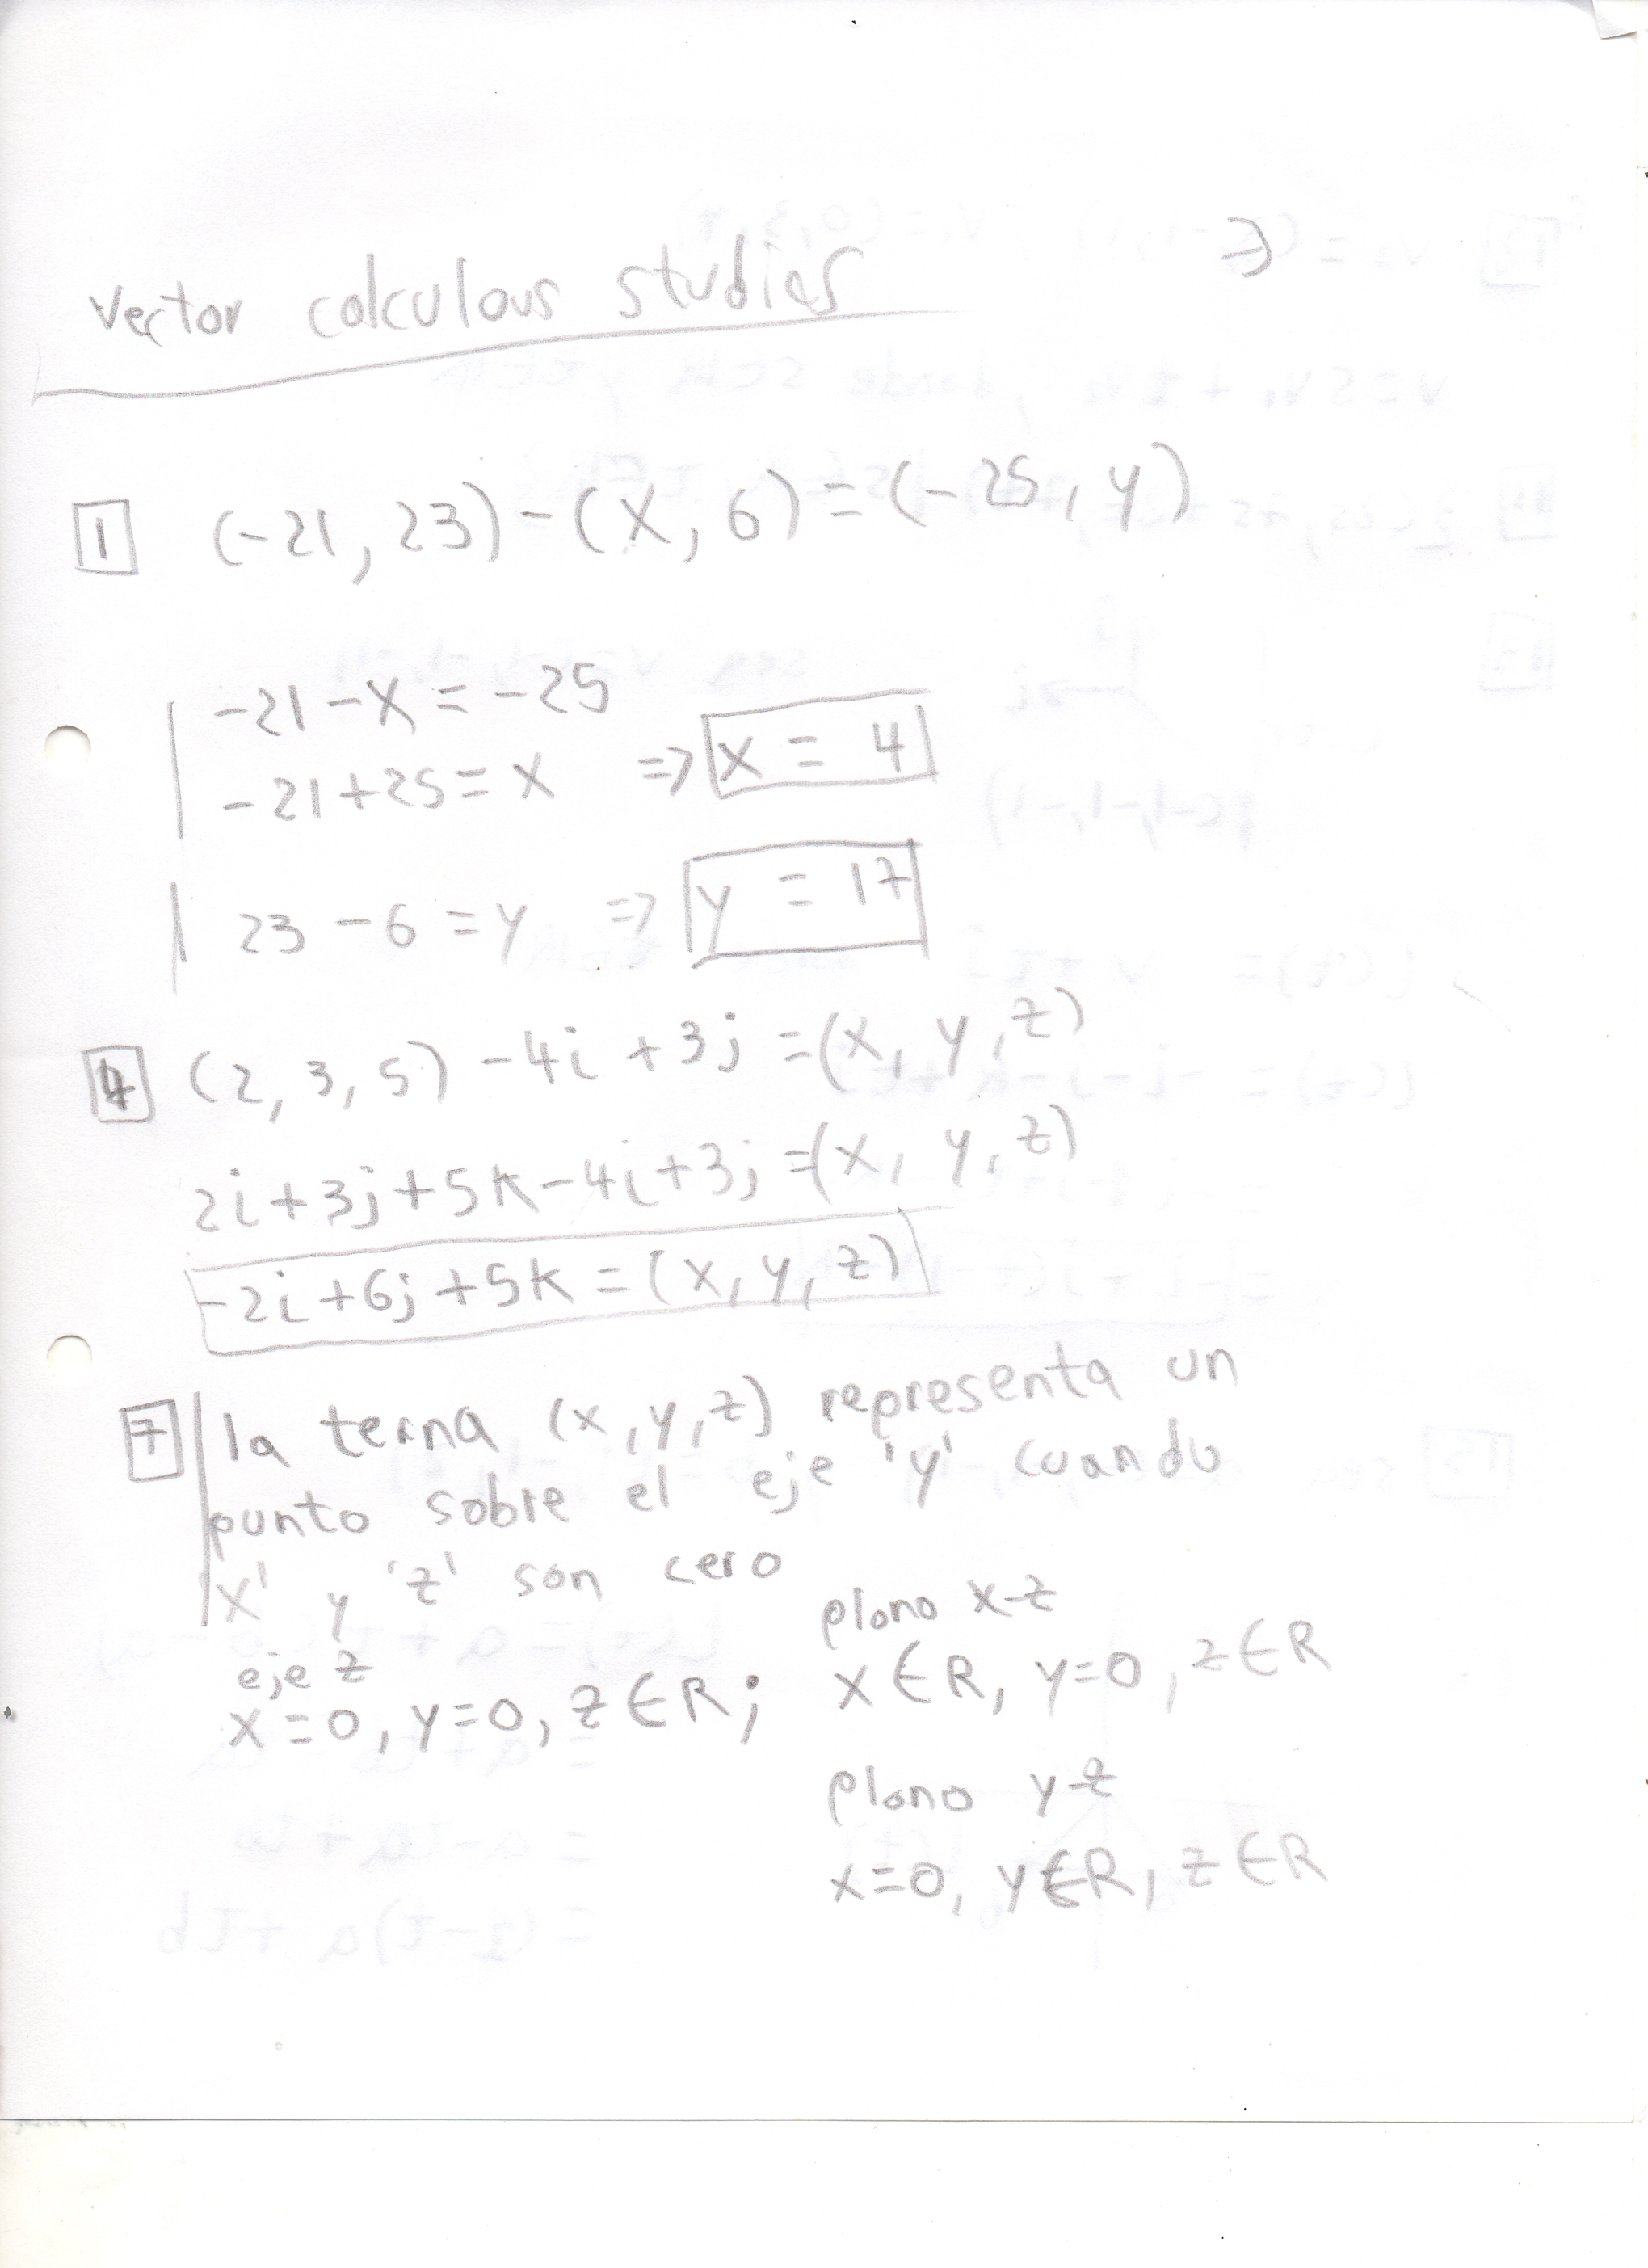 vector calculous studies
⇒
1 (-21, 23) - (x, 6) = (-25, y)
-21 - x = -25
-21 + 25 = x ⇒ x = 4
23 - 6 = y ⇒ y = 17
4 (2, 3, 5) - 4i + 3j = (x, y, z)
2i + 3j + 5k - 4i + 3j = (x, y, z)
-2i + 6j + 5k = (x, y, z)
7 la terna (x, y, z) representa un
punto sobre el eje 'y' cuando
'x' y 'z' son cero
eje z
x = 0, y = 0, z ∈ R;
plano x-z
x ∈ R, y = 0, z ∈ R
plano y-z
x = 0, y ∈ R, z ∈ R